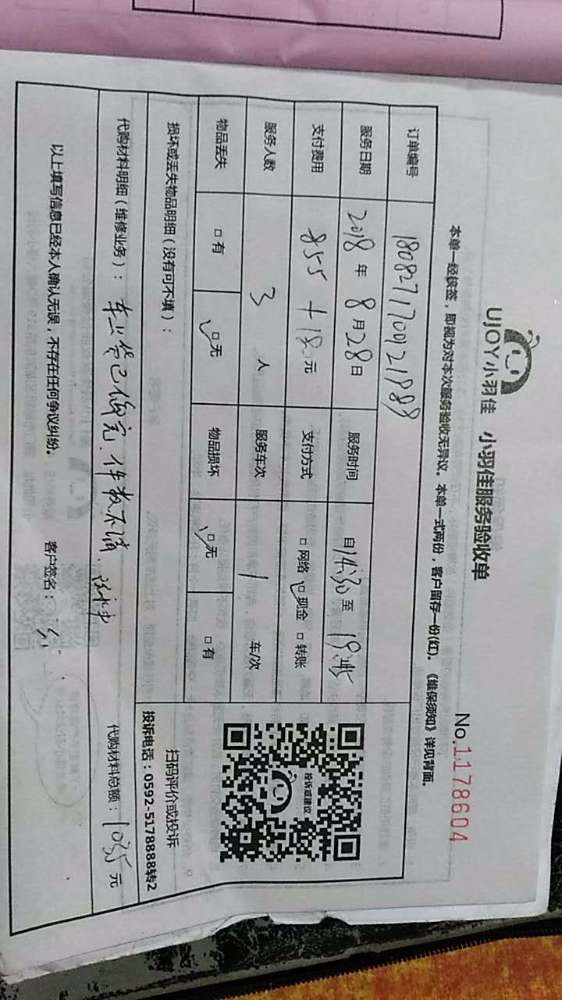 UJOY小羽佳 小羽佳服务验收单
No.1178604
本单一经核签，即视为对本次服务验收无异议。本单一式两份，客户留存一份(红)。《维保须知》详见背面。
订单编号
服务日期 2018年8月28日 服务时间 自14:30至
支付费用 元 支付方式 □网络 □现金 □转账
服务人数 3 人 服务车次 1 车/次
物品丢失 □有 □无 物品损坏 □无 □有
损坏或丢失物品明细（没有可不填）：
投诉或建议
扫码评价或投诉
投诉电话：0592-5178888转2
代购材料明细（维修业务）： 件数不清
代购材料总额： 元
以上填写信息已经本人确认无误，不存在任何争议纠纷。 客户签名：